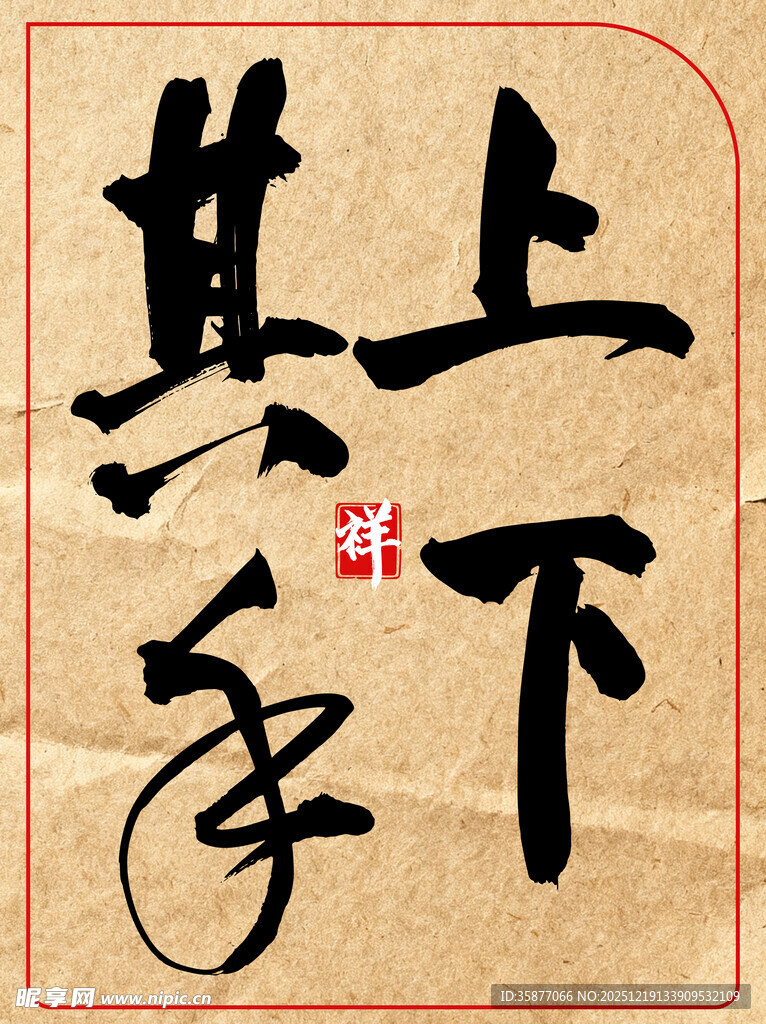 上下
其手
祥
昵享网 www.nipic.cn
ID:35877066 NO:20251219133909532109